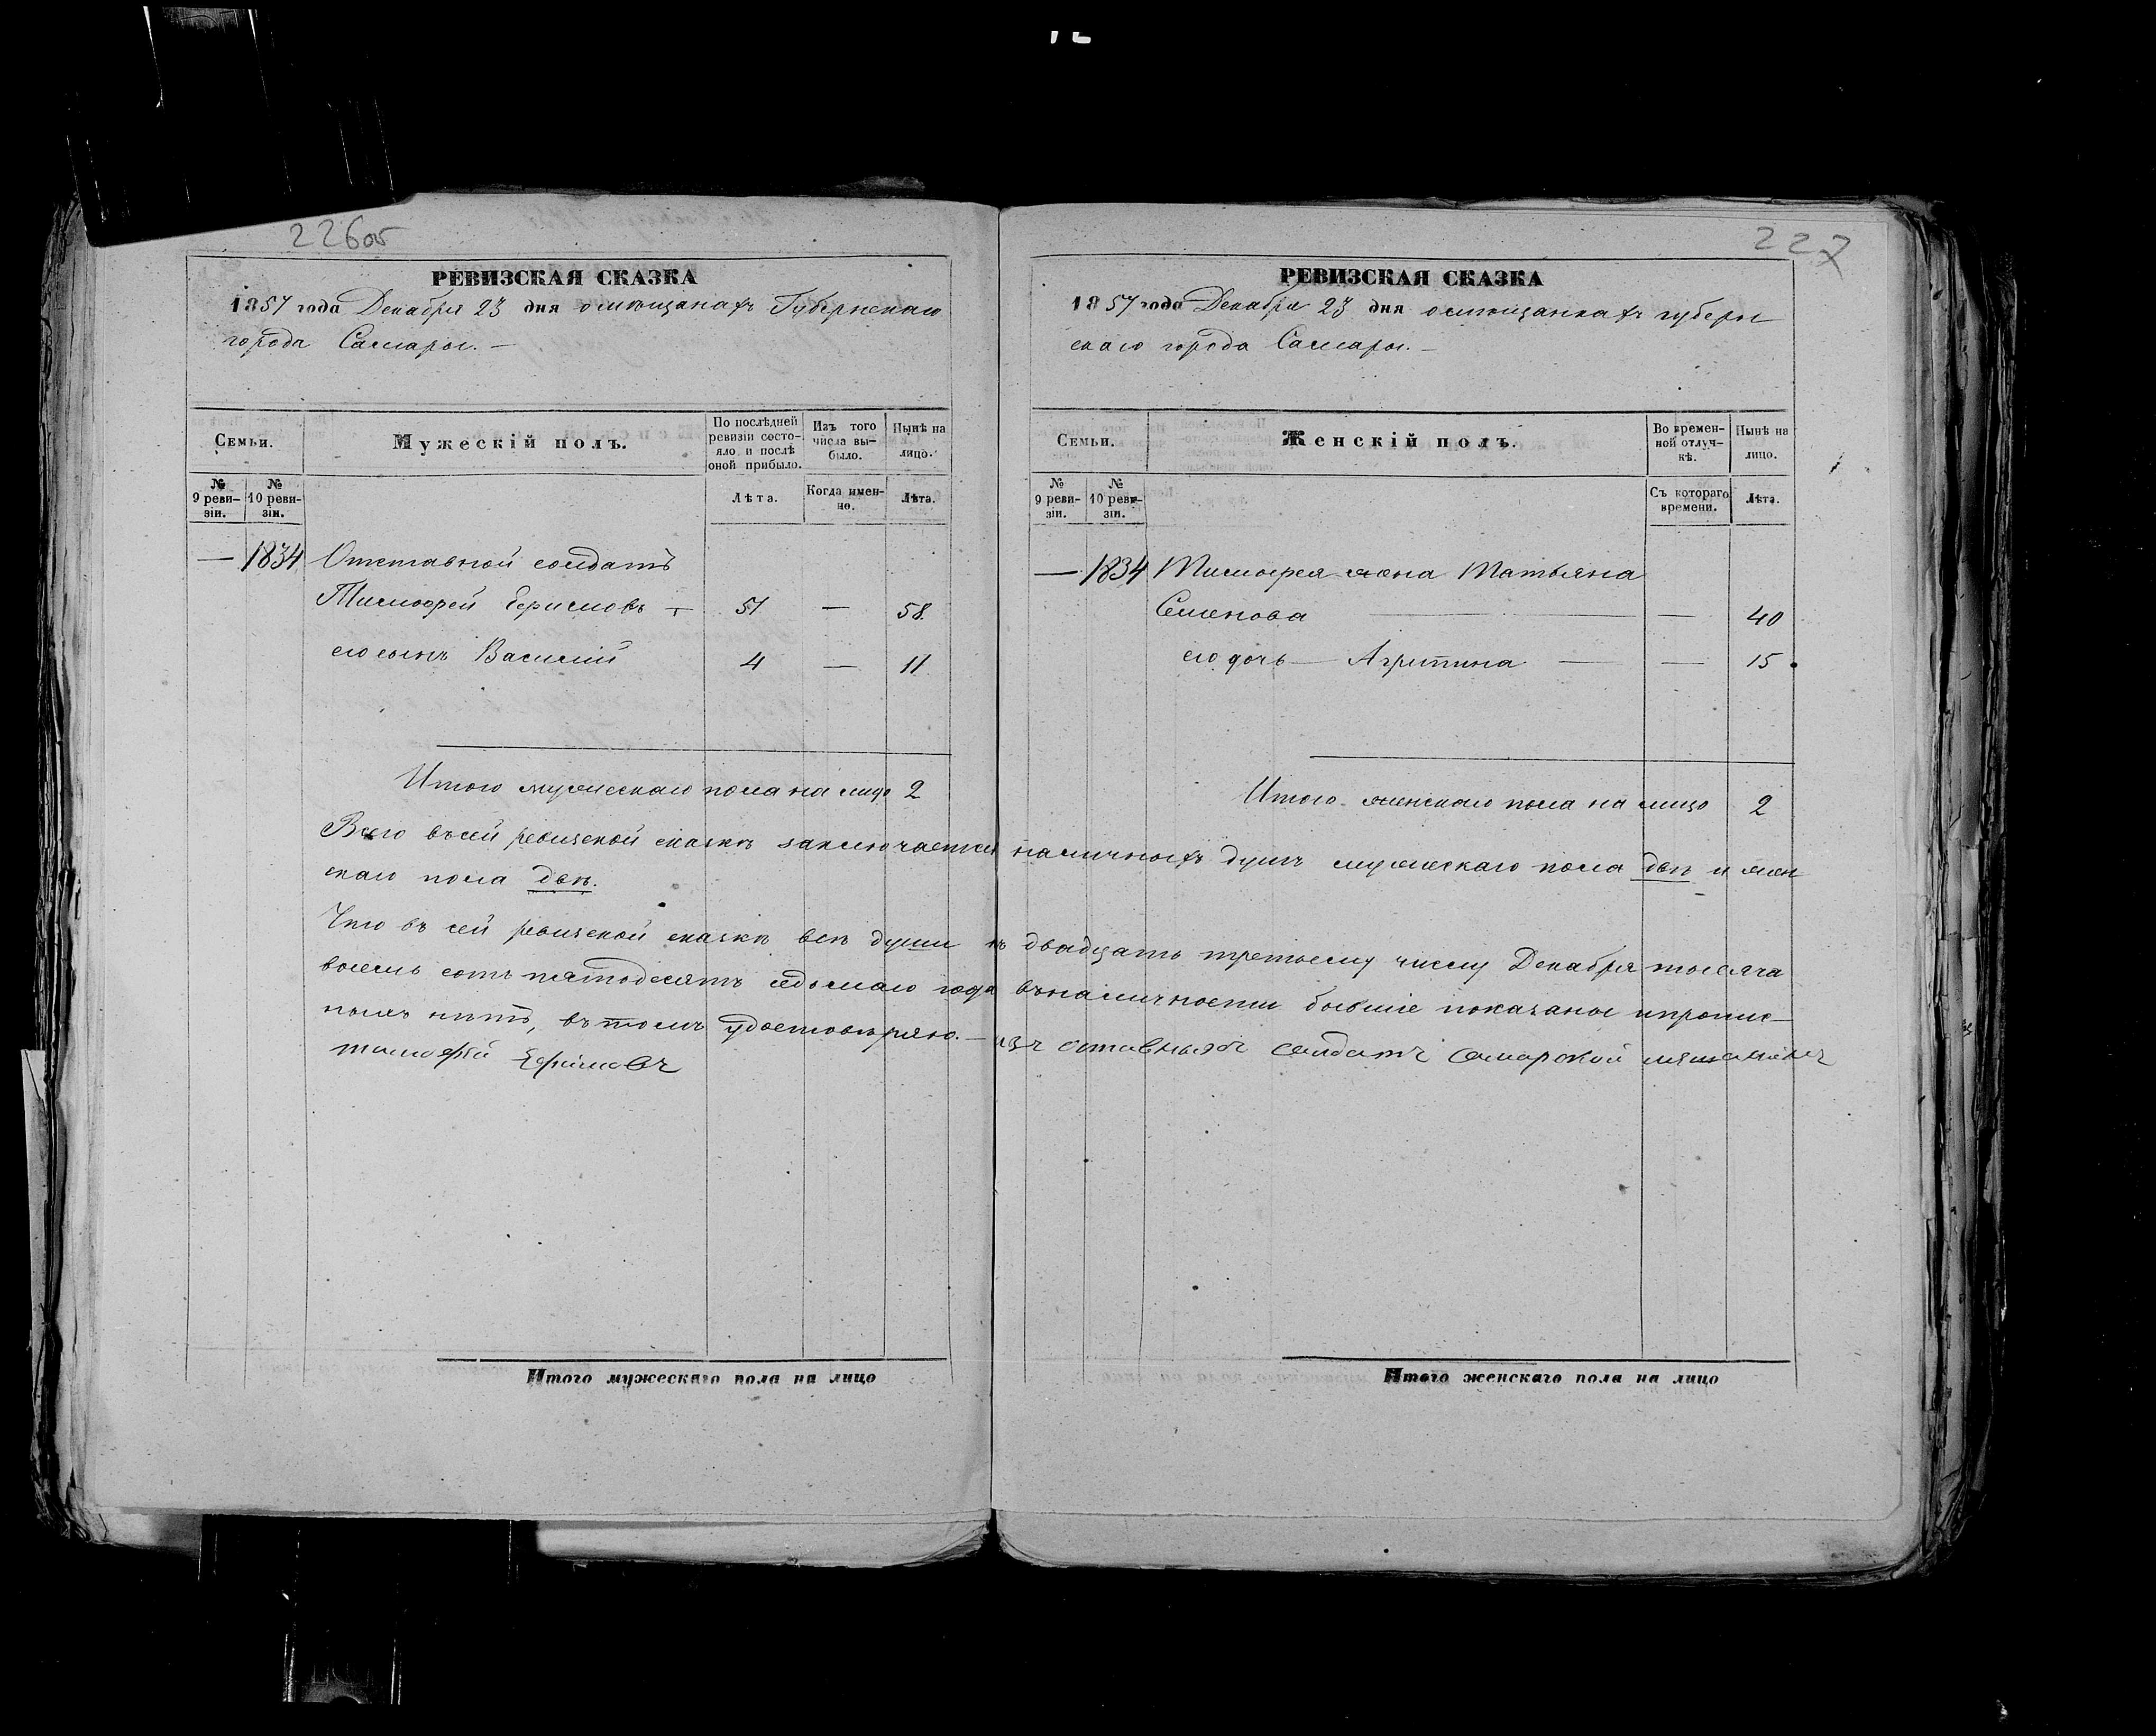 226об
РЕВИЗСКАЯ СКАЗКА
1857 года Декабря 23 дня омѣщанахъ Губернскаго
города Самары. —
Семьи.
Мужескій полъ.
По послѣдней ревизіи состояло и послѣ оной прибыло.
Изъ того числа выбыло.
Нынѣ на лицо.
№ 9 ревизіи.
№ 10 ревизіи.
Лѣта.
Когда именно.
Лѣта.
— 1834 Отставной солдатъ
Тимофей Ефимовъ — 51 — 58.
его сынъ Василий 4 — 11
Итого мужескаго пола на лицо 2
227
РЕВИЗСКАЯ СКАЗКА
1857 года Декабря 23 дня омѣщанкахъ губерн
скаго города Самары. —
Семьи.
Женскій полъ.
Во временной отлучкѣ.
Нынѣ на лицо.
№ 9 ревизіи.
№ 10 ревизіи.
Съ котораго времени.
Лѣта.
— 1834 Тимофея жена Татьяна
Семенова — — 40
его дочь — Агрипина — — 15
Итого женскаго пола на лицо 2
Всего въсей ревизской сказкѣ заключается наличныхъ душъ мужескаго пола двѣ и жен
скаго пола двѣ.
Что въ сей ревизской сказкѣ всѣ души къ двадцать третьему числу Декабря тысяча
восемь сотъ пятьдесятъ седьмаго года въналичности бывшіе показаны ипропис—
ныхъ нѣтъ, вътомъ удостовѣряю. — изъ оставныхъ салдатъ самарской мѣшанинъ
тимофей Ефимовъ
Итого мужескаго пола на лицо
Итого женскаго пола на лицо